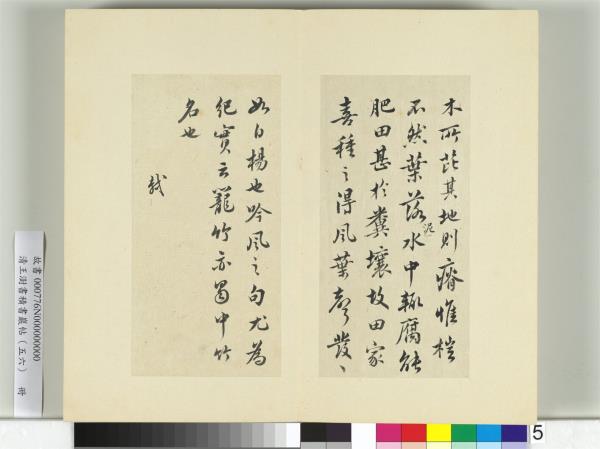 木所芘其地則瘠惟榿
不然葉落水中輒腐能
泥
肥田甚於糞壤故田家
喜種之得風葉聲發〻
如白楊也吟風之句尤為
紀實云籠竹亦蜀中竹
名也
軾
故書 000776N000000000
清王澍書積書巖帖（五六） 冊
5